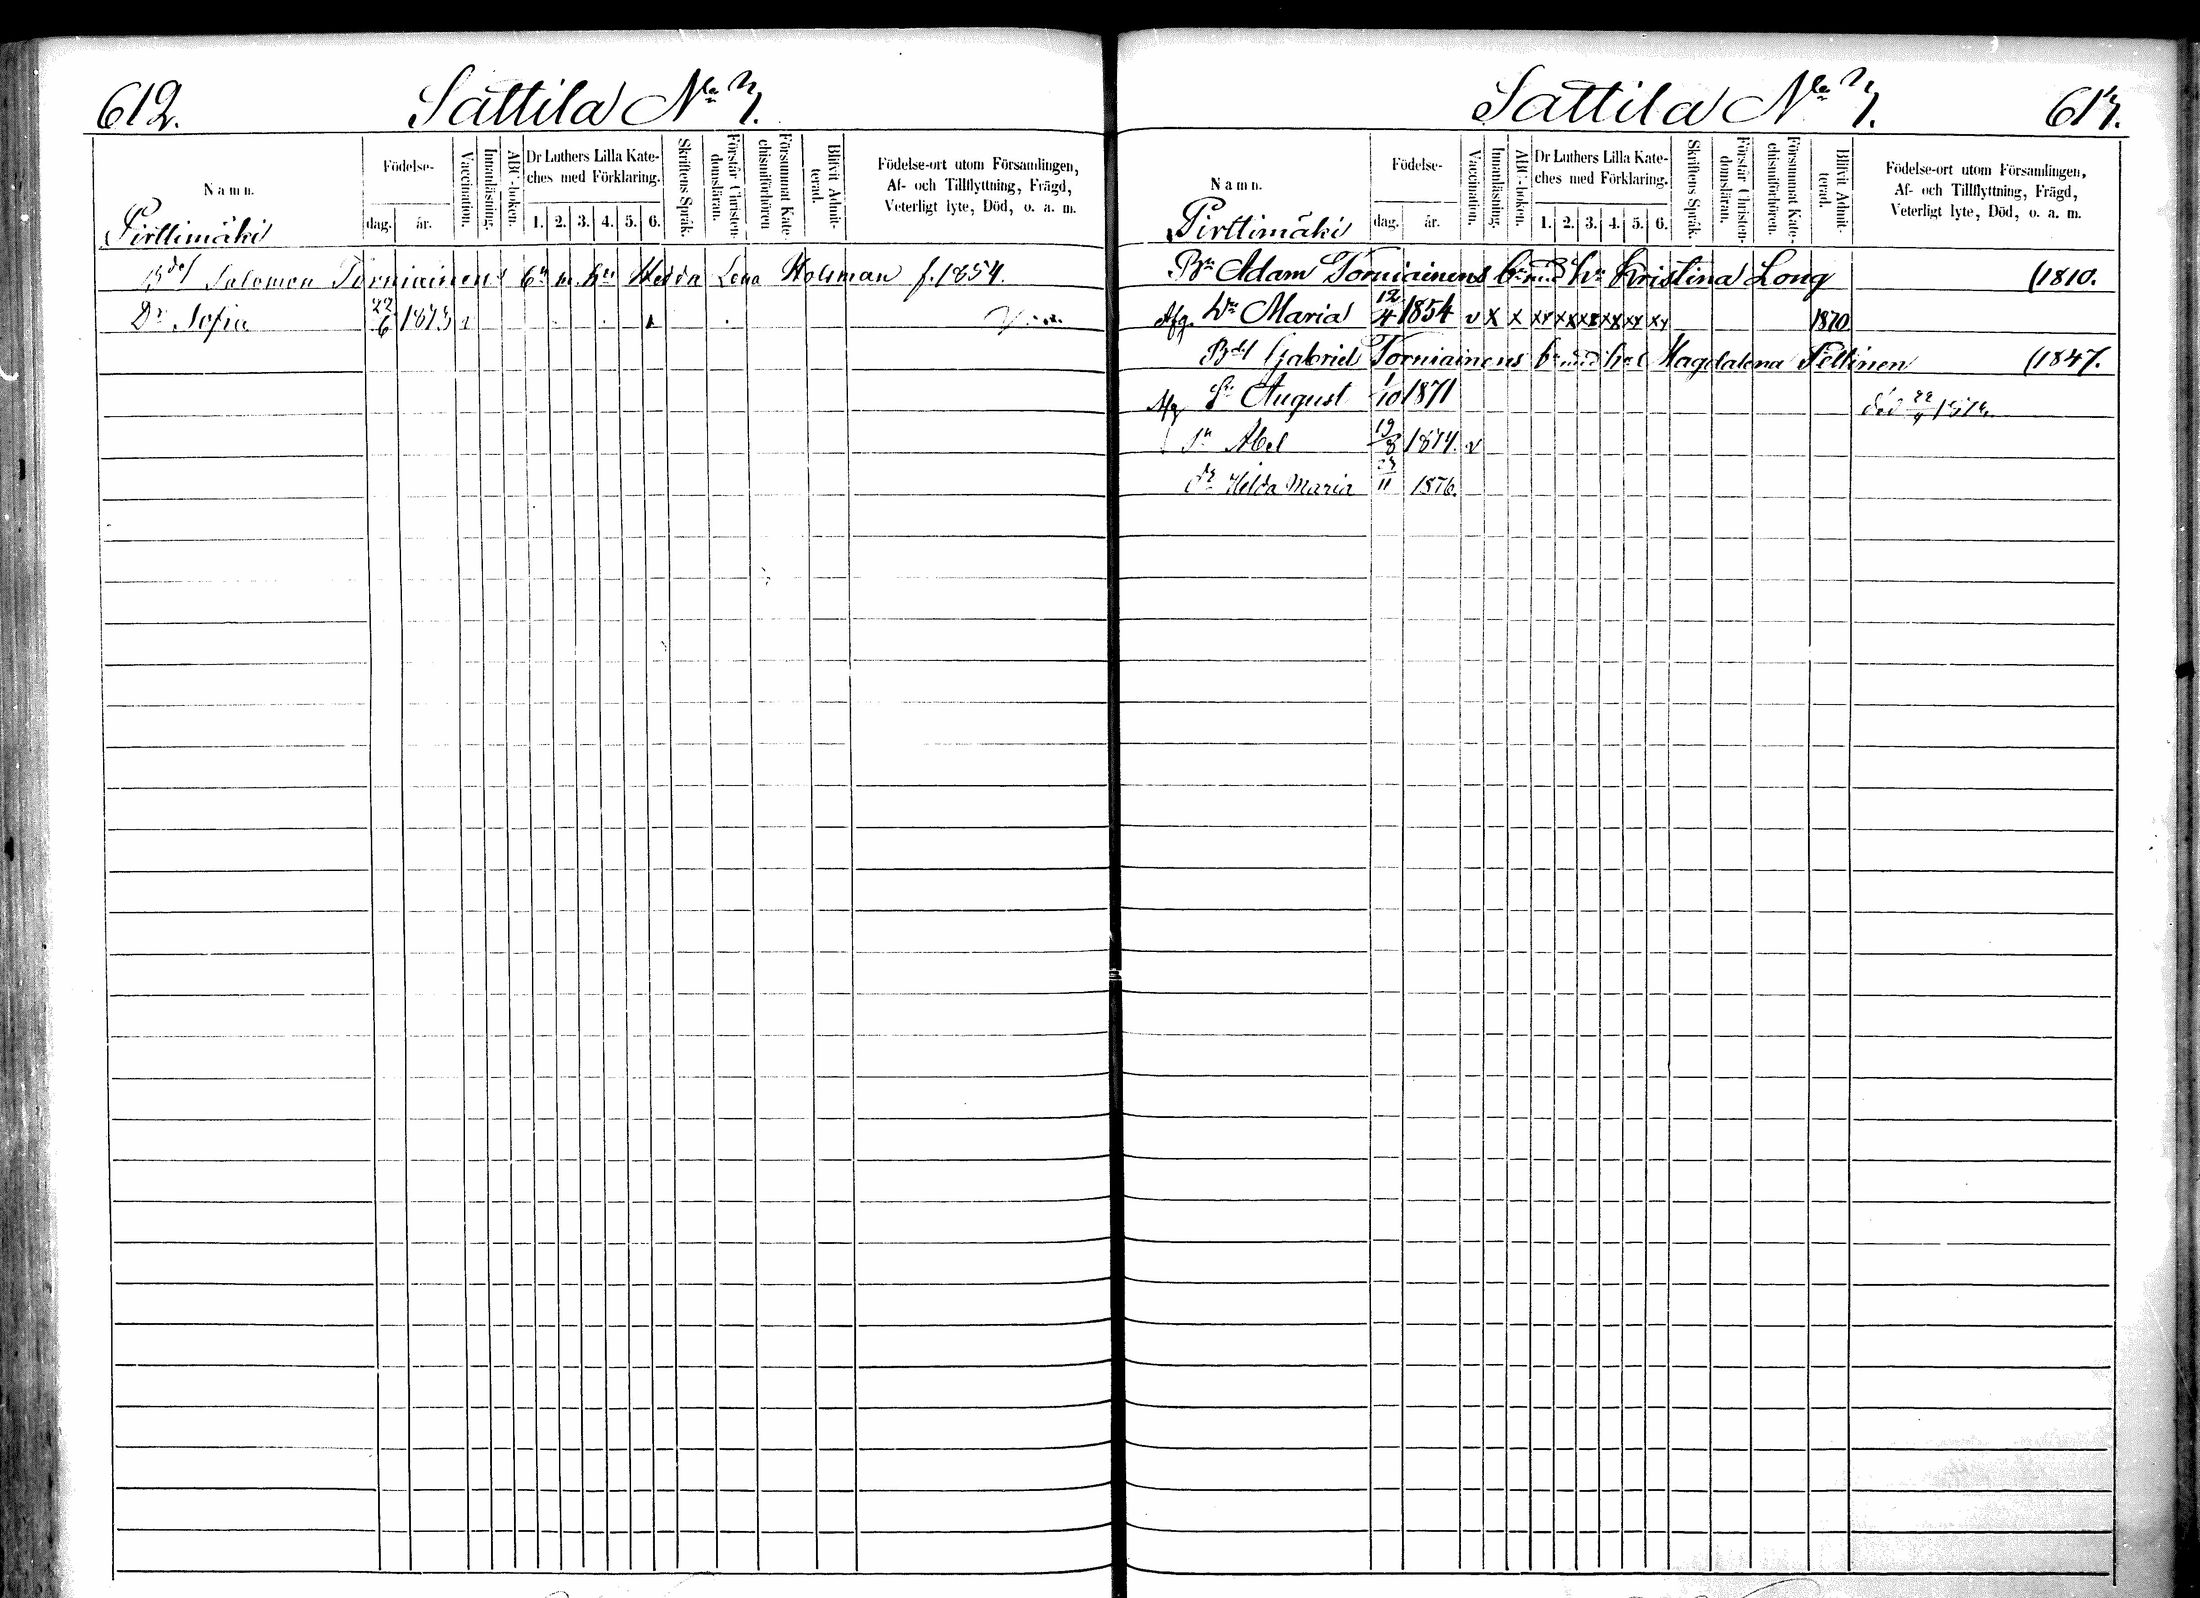 612.
Sattila No 3.
Namn.
Födelse-
dag.
år.
Vaccination.
Innanläsning.
ABC-boken.
Dr Luthers Lilla Kate-
ches med Förklaring.
1. 2. 3. 4. 5. 6.
Skriftens Språk.
Förstår Christen-
domsläran.
Försummat Kate-
chismiförhören
Blifvit Admit-
terad.
Födelse-ort utom Församlingen,
Af- och Tillflyttning, Frägd,
Veterligt lyte, Död, o. a. m.
Pirttimäki
Salomon Torniainens bn m. hu Hedda Lena Holsman f. 1854.
Dr Sofia 22/6 1873
Sattila No 3.
613.
Namn.
Födelse-
dag.
år.
Vaccination.
Innanläsning.
ABC-boken.
Dr Luthers Lilla Kate-
ches med Förklaring.
1. 2. 3. 4. 5. 6.
Skriftens Språk.
Förstår Christen-
domsläran.
Försummat Kate-
chismiförhören.
Blifvit Admit-
terad.
Födelse-ort utom Församlingen,
Af- och Tillflyttning, Frägd,
Veterligt lyte, Död, o. a. m.
Pirttimäki
Bn Adam Torniainens bn med hu Kristina Long (1810.
Afg. Dr Maria 12/4 1854 v x x xx xx xx xx xx xx 1870
Gabriel Torniainens bn med Magdalena Peltinen (1847.
Afg Sn August 1/10 1871 död
Sn Abel 19/8 1874. v
dr Hilda Maria 23/11 1876.